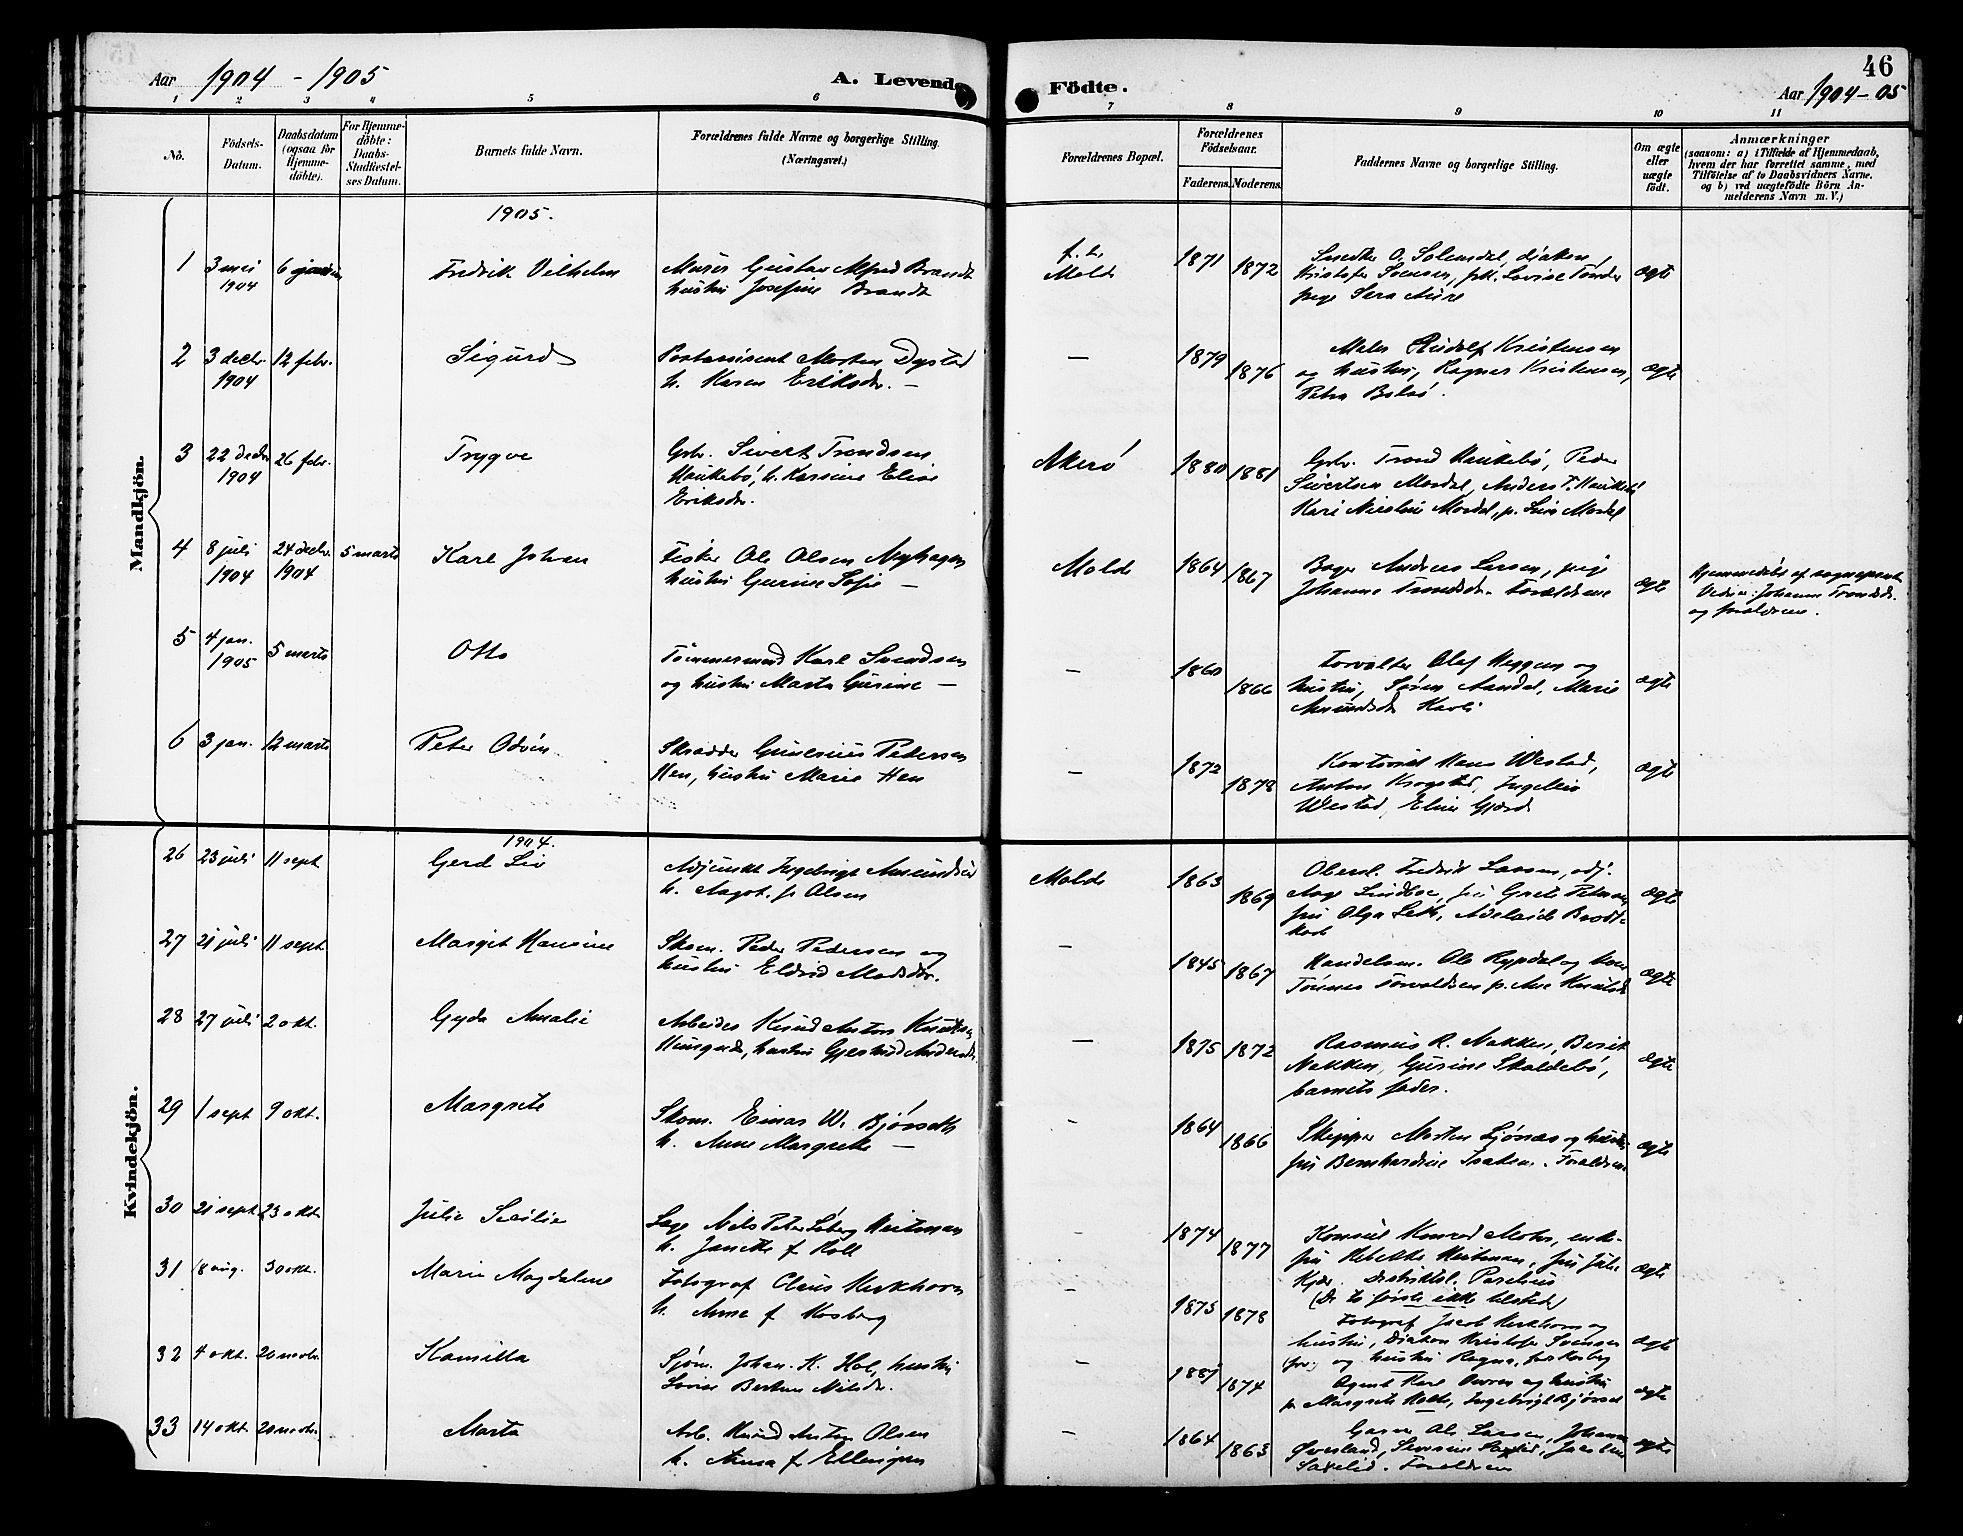 Aar 1904 - 1905
A. Levende Födte.
46
Aar 1904-05
1 2 3 4 5 6 7 8 9 10 11
No.
Födsels-
Datum.
Daabsdatum
(ogsaa for
Hjemme-
döbte).
For Hjemme-
döbte:
Daabs-
Stadfæstel-
ses Datum.
Barnets fulde Navn.
Forældrenes fulde Navne og borgerlige Stilling.
(Næringsvei.)
Forældrenes Bopæl.
Forældrenes
Födselsaar.
Faderens. Moderens.
Faddernes Navne og borgerlige Stilling.
Om ægte
eller
uægte
födt.
Anmærkninger
(saasom: a) i Tilfælde af Hjemmedaab,
hvem der har forrettet samme, med
Tilföielse af to Daabsvidners Navne,
og b) ved uægtefödte Börn An-
melderens Navn m. V.)
Mandkjön.
1905.
1 3 mai 1904 6 januar Fredrik Vilhelm
Murer Gustav Alfred Brandt
hustru Josefine Brandt
Molde 1871 1872
Snedker O. Solemdal, diakon
Kristofer Svensen, frk. Lovise Tønder
pige Sara Aure
ægte
2 3 decbr. 1904 12 febr. Sigurd
Postassistent Morten Dystad
h. Karen Eriksdr. —
— 1879 1876
Maler Rudolf Kristensen
og hustru, Ragnar Kristensen,
Petra Bolsö.
ægte
3 22 decbr 1904 26 febr. Trygve
Gbr. Sivert Trondsen
Haukebö, h. Karsine Elise
Eriksdr.
Akerö 1880 1881
Gbr. Trond Haukebö, Peder
Sivertsen Mordal, Anders T. Haukebö
Kari Nicoline Mordal, p. Lina Mordal
4 8 juli 1904 24 decbr. 1904 5 marts Karl Johan
Fisker Ole Olsen Myhagen
hustru Gurine Sofie —
Molde 1864 1867
Bager Andreas Larsen, pige
Johanne Trondsdr. Forældrene
ægte
Hjemmedöbt af sogneprest
Vidner: Johanne Trondsdr.
og forældrene.
5 4 jan. 1905 5 marts Otto
Tømmermand Karl Svendsen
og hustru Marta Gurine —
— 1860 1866
Forvalter Olaf Heggem og
hustru, Søren Aandal, Marie
Amundsdr Havli
ægte
6 3 jan. 12 marts Peter Odvin
Skrædder Gunerius Pedersen
Hen, hustru Marie Hen
— 1872 1878
Kontorist Hans Westad,
Anton Krogstad, Ingeleiv
Westad, Eline Gjærd
ægte
Kvindekjön.
1904.
26 23 juli 11 sept Gerd Liv
Adjunkt Ingebrigt Amundsen
h. Aagot f. Olsen
Molde 1863 1869
Overl. Fredrik Larsen, adj.
Aage Lindboe, fru Grete Petersen
fru Olga Leth, Adelaide Brodt-
korb
ægte
27 21 juli 11 sept. Margit Hansine
Skom. Peder Pedersen og
hustru Eldrid Madsdtr.
— 1845 1867
Handelsm. Ole Rypdal og kone
Tönnes Torvaldsen p. Ane Knutsdr
ægte
28 27 juli 2 okt. Gyda Amalie
Arbeider Knud Anton Knutsen
hustru Gjertrud Andersdr.
— 1875 1872
Rasmus R. Nakken, Berit
Nakken, Gurine Skaldebö,
barnets fader.
ægte
29 1 sept 9 okt. Margrete
Skom. Einar W. Bjørseth
h. Anne Margrete —
— 1864 1866
Skipper Morten Sjönæs og hustru
fru Bernhardine Isaksen. Forældrene
ægte
30 21 sept. 23 okt. Julie Secilie
Læge Nils Peter Søberg Heitman
h. Janette f. Roll
— 1874 1877
Konsul Konrad Mohn, enke-
fru Rebekka Heitman, fru Julie
Kjær. Distriktsl. Parelius
(De to første ikke tilstede)
ægte
31 18 aug. 30 okt. Marie Magdalene
Fotograf Claus Kirkhorn
h. Anne f. Kosberg
— 1875 1878
Fotograf Jacob Kirkhorn og
hustru, Diakon Kristofer Svensen
og hustru Ragna, frk Kosberg
ægte
32 4 okt. 20 novbr. Kamilla
Sjöm. Johan K. Hol, hustru
Lovise Bertine Nilsdr.
— 1881 1874
Agent Karl Owren og hustru
p. Margrete Holte, Ingebrigt Bjørset
ægte
33 14 okt. 20 novbr. Marta
Arb. Knud Anton Olsen
h. Anna f. Ellingsen
1864 1863
Garver Ole Larsen, Johanne
Øverland, Severine Sakslid, Jacobine
Sakslid. Forældrene
ægte